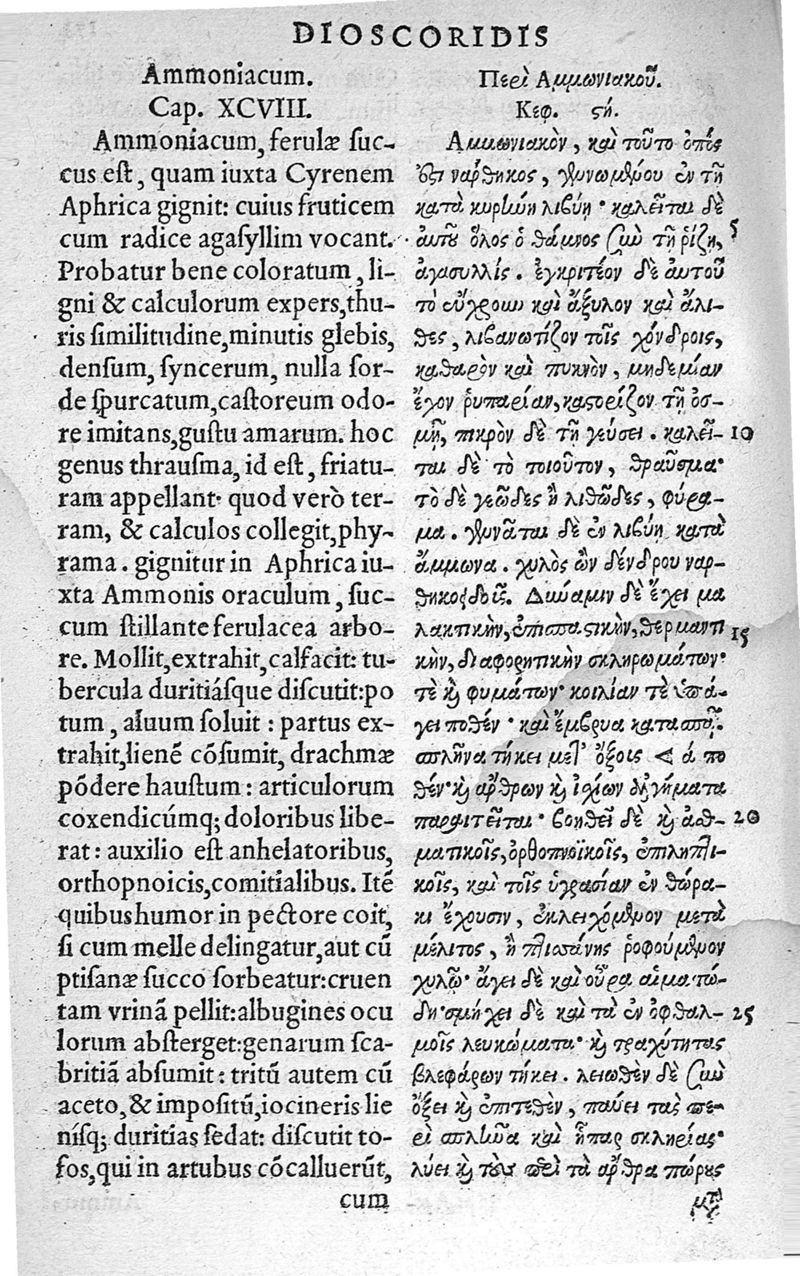 DIOSCORIDIS
Ammoniacum.
Cap. XCVIII.
Ammoniacum, ferulæ suc-
cus est, quam iuxta Cyrenem
Aphrica gignit: cuius fruticem
cum radice agasyllim vocant.
Probatur bene coloratum, li-
gni & calculorum expers, thu-
ris similitudine, minutis glebis,
densum, syncerum, nulla sor-
de spurcatum, castoreum odo-
re imitans, gustu amarum. hoc
genus thrausma, id est, friatu-
ram appellant: quod verò ter-
ram, & calculos collegit, phy-
rama. gignitur in Aphrica iu-
xta Ammonis oraculum, suc-
cum stillante ferulacea arbo-
re. Mollit, extrahit, calfacit: tu-
bercula duritiásque discutit: po
tum, aluum soluit: partus ex-
trahit, lienē cōsumit, drachmæ
pōdere haustum: articulorum
coxendicúmq; doloribus libe-
rat: auxilio est anhelatoribus,
orthopnoicis, comitialibus. Itē
quibus humor in pectore coit,
si cum melle delingatur, aut cū
ptisanæ succo sorbeatur: cruen
tam vrinā pellit: albugines ocu
lorum absterget: genarum sca-
britiā absumit: tritū autem cū
aceto, & impositū, iocineris lie
nísq; duritias sedat: discutit to-
fos, qui in artubus cōcalluerūt,
cum
Περὶ Αμμωνιακοῦ.
Κεφ. ϟή.
Αμμωνιακὸν, καὶ τοῦτο ὀπός
ὅστι νάρθηκος, γεννωμένου ἐν τῇ
κατὰ κυρήνην λιβύῃ · καλεῖται δὲ
αὐτοῦ ὅλος ὁ θάμνος σὺν τῇ ῥίζῃ, 5
ἀγασυλλίς. ἐγκριτέον δὲ αὐτοῦ
τὸ εὔχρουν καὶ ἄξυλον καὶ ἄλι-
θες, λιβανωτίζον τοῖς χόνδροις,
καθαρὸν καὶ πυκνὸν, μηδεμίαν
ἔχον ῥυπαρίαν, καστορίζον τῇ ὀσ-
μῇ, πικρὸν δὲ τῇ γεύσει. καλεῖ- 10
ται δὲ τὸ τοιοῦτον, θραῦσμα·
τὸ δὲ γεῶδες ἢ λιθῶδες, φύρα-
μα. γεννᾶται δὲ ἐν λιβύῃ κατὰ
ἄμμωνα. χυλὸς ὢν δένδρου ναρ-
θηκοειδοῖς. Δύναμιν δὲ ἔχει μα
λακτικὴν, ἐπισπαστικὴν, θερμαντι 15
κὴν, διαφορητικὴν σκληρωμάτων·
τὲ καὶ φυμάτων· κοιλίαν τὲ ὑπά-
γει ποθέν · καὶ ἔμβρυα κατασπᾷ.
σπλῆνα τήκει μετ' ὄξοις < ά πο
θέν· καὶ ἄρθρων καὶ ἰσχίων ἀλγήματα
παραιτεῖται · βοηθεῖ δὲ καὶ ἀσθ- 20
ματικοῖς, ὀρθοπνοϊκοῖς, ἐπιληπτι-
κοῖς, καὶ τοῖς ὑγρασίαν ἐν θώρα-
κι ἔχουσιν, ἐκλειχόμενον μετὰ
μέλιτος, ἢ πτισάνης ῥοφούμενον
χυλῷ· ἄγει δὲ καὶ οὖρα αἱματώ-
δη· σμήχει δὲ καὶ τὰ ἐν ὀφθαλ- 25
μοῖς λευκώματα· καὶ τραχύτητας
βλεφάρων τήκει. λειωθὲν δὲ σὺν
ὄξει καὶ ἐπιτεθὲν, παύει τὰς πε-
ρὶ σπλῆνα καὶ ἧπαρ σκληρίας·
λύει καὶ τοὺς περὶ τὰ ἄρθρα πώρους